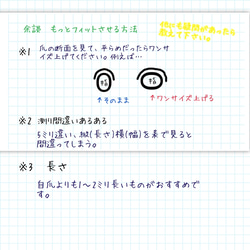 余談 もっとフィットさせる方法
何か疑問があったら
教えて下さい。
※1 爪の断面を見て、平らめだったらワンサ
イズ上げてください。例えば…
幅 幅
↑そのまま ↑ワンサイズ上げる
※2 測り間違いあるある
5ミリ違い、縦(長さ)横(幅)を表で見ると
間違ってしまう。
※3 長さ
自爪よりも1〜2ミリ長いものがおすすめで
す。